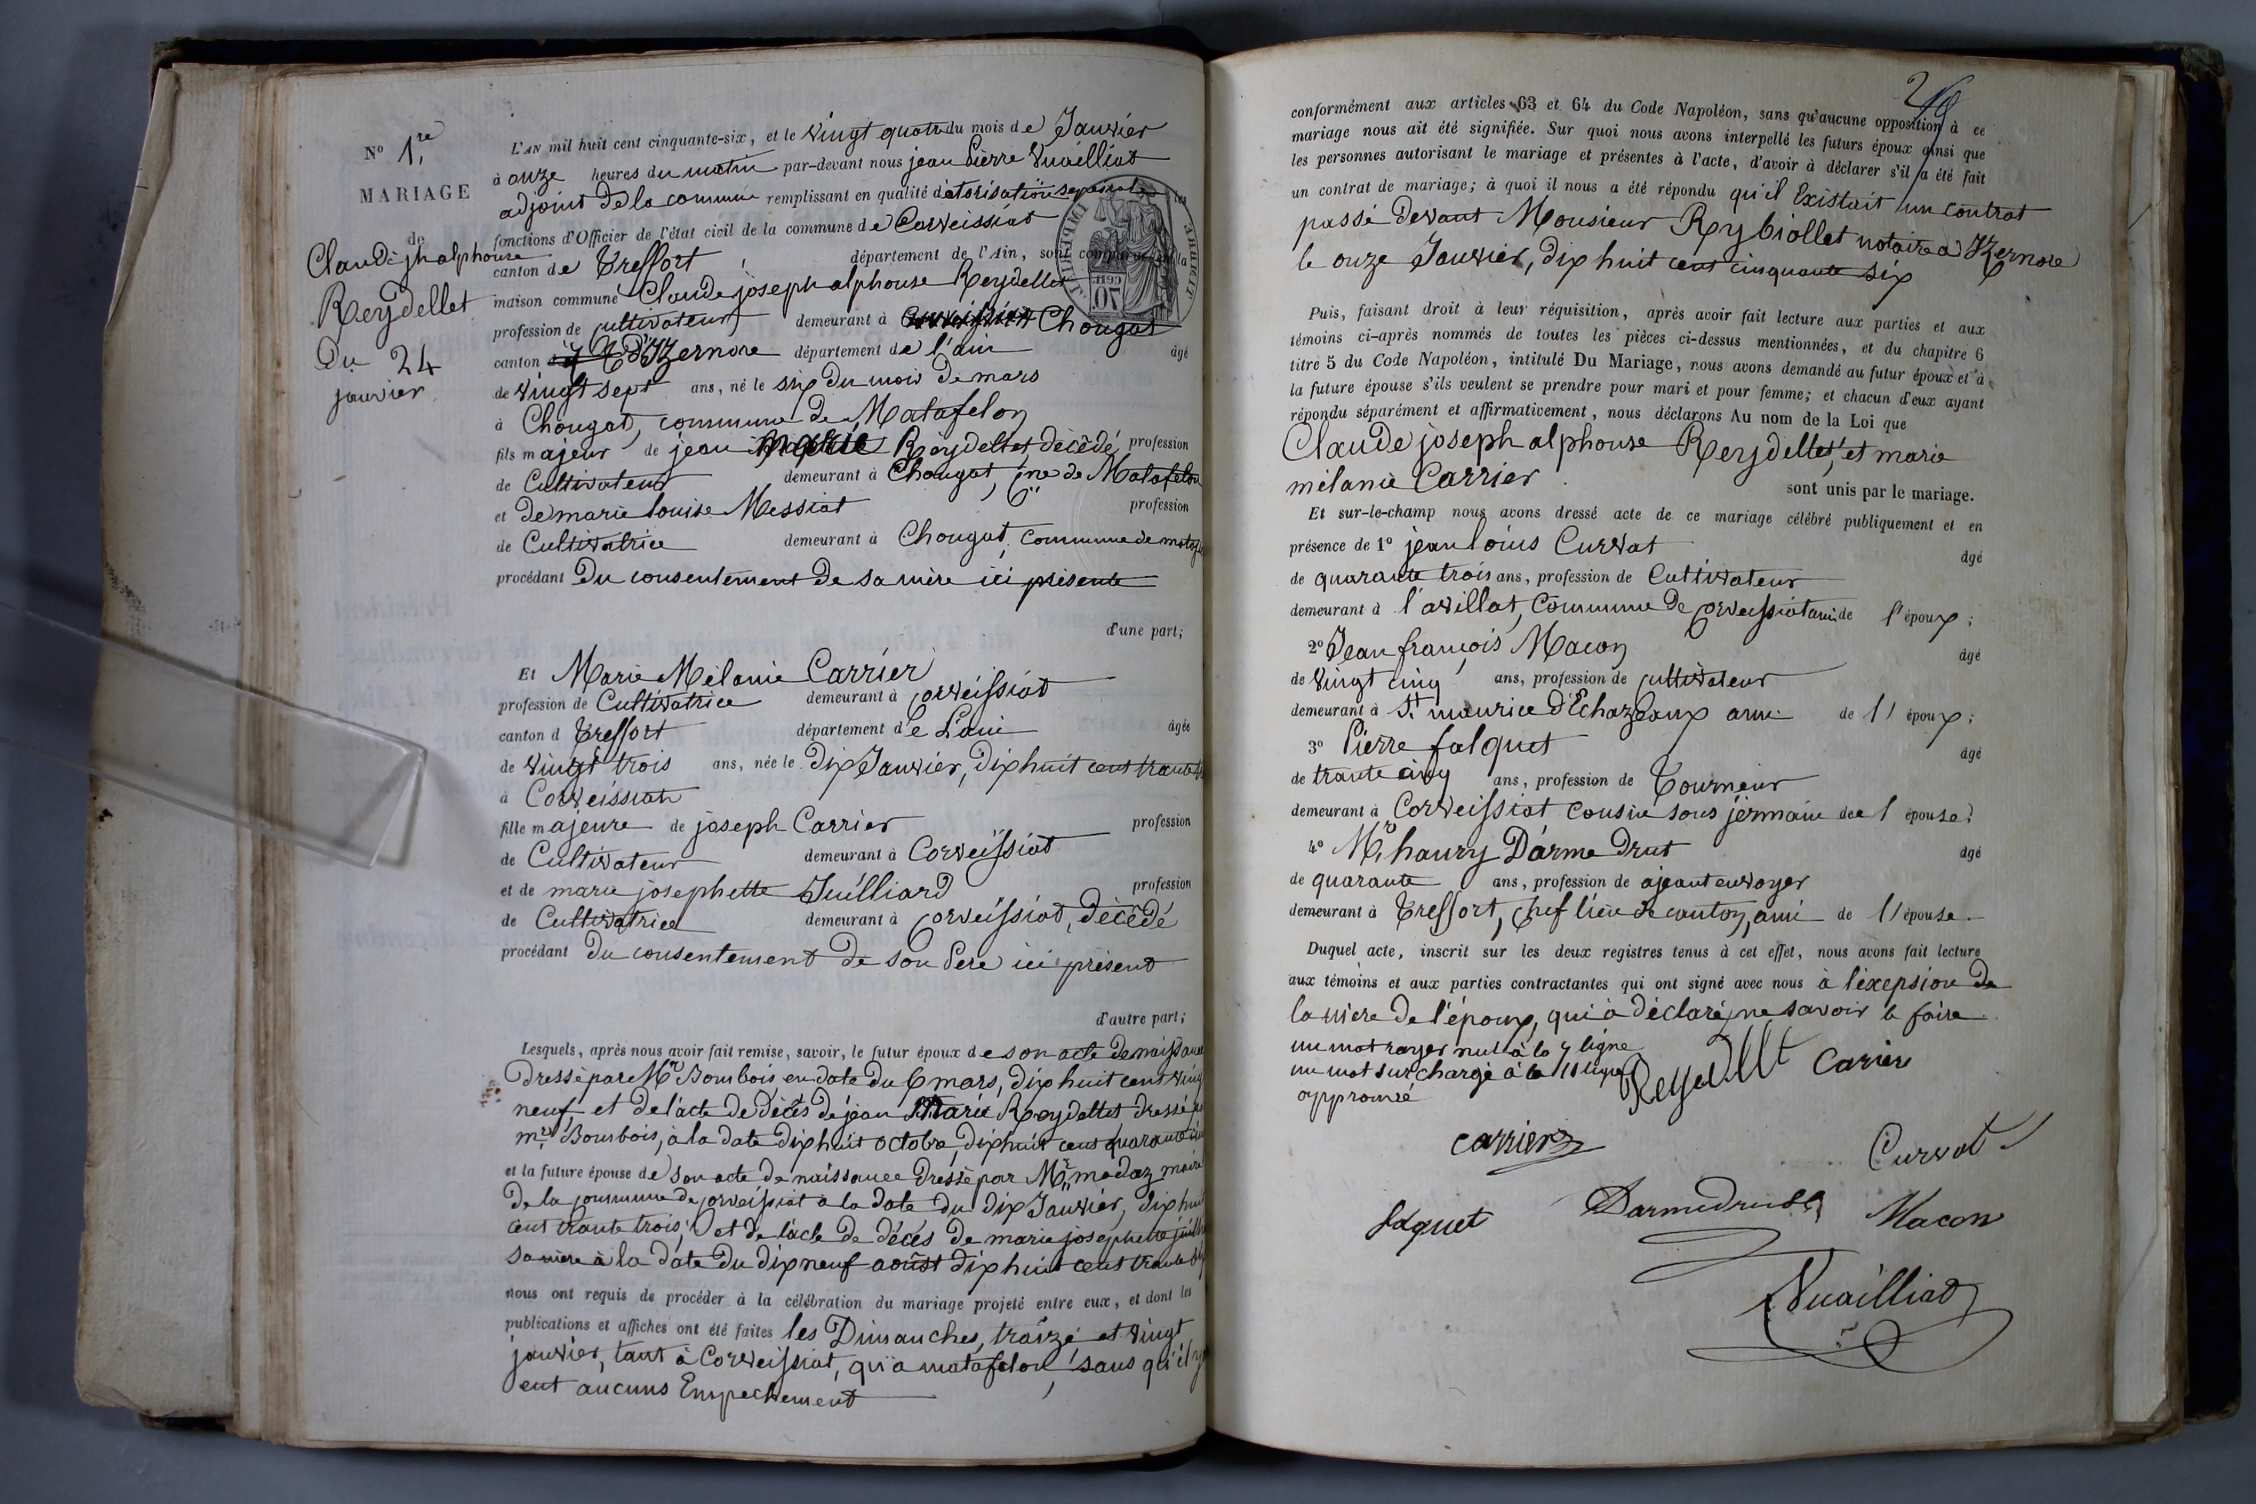 N° 1re
MARIAGE
de
Claude jh alphonse
Reydellet
Du 24
janvier
L'AN mil huit cent cinquante-six, et le vingt quatre du mois de Janvier
à onze heures du matin par-devant nous jean Pierre Vuailliat
adjoint de la commune remplissant en qualité d'atorisation les
fonctions d'Officier de l'état civil de la commune de Corveissiat
canton de Treffort département de l'Ain, sont comparus à la
maison commune Claude joseph alphonse Reydellet
profession de cultivateur demeurant à Chougat
canton d'Izernore département de l'ain âgé
de vingt sept ans, né le six du mois de mars
à Chougat, commune de Matafelon
fils majeur de jean marie Reydellet, décédé profession
de Cultivateur demeurant à Chougat, Cne de Matafelon
et de marie louise Messiat profession
de Cultivatrice demeurant à Chougat, commune de
procédant du consentement de sa mère ici présente
d'une part;
Et Marie Mélanie Carrier
profession de Cultivatrice demeurant à Corveissiat
canton d Treffort département de L'ain âgée
de vingt trois ans, née le dix Janvier, dix huit cent trante
à Corveissiat
fille majeure de joseph Carrier profession
de Cultivateur demeurant à Corveissiat
et de marie josephette Juilliard profession
de Cultivatrice demeurant à Corveissiat, décédé
procédant du consentement de son Père ici présent
d'autre part;
Lesquels, après nous avoir fait remise, savoir, le futur époux de son acte de naissance
dressé par Mr Bourbois en date du 6 mars, dix huit cent vingt
neuf, et de l'acte de décès de jean Marie Reydellet dressé
mr Bourbois, à la date dix huit octobre, dix huit cent quarante
et la future épouse de son acte de naissance dressé par Mr madaz maire
de la commune de Corveissiat à la date du dix Janvier, dix huit
cent trante trois, et de l'acte de décés de marie josephette
sa mère à la date du dix neuf aoùst dix huit cent trante
nous ont requis de procéder à la célébration du mariage projeté entre eux, et dont les
publications et affiches ont été faites les Dimanches, traize et vingt
janvier, tant à Corveissiat, qu'a matafelon, sans qu'il
eut aucuns Empechement
conformément aux articles 63 et 64 du Code Napoléon, sans qu'aucune opposition à ce
mariage nous ait été signifiée. Sur quoi nous avons interpellé les futurs époux ainsi que
les personnes autorisant le mariage et présentes à l'acte, d'avoir à déclarer s'il a été fait
un contrat de mariage; à quoi il nous a été répondu qu'il Existait un contrat
passé devant Monsieur Reybiollet notaire a Izernore
le onze Janvier, dix huit cent cinquante six
Puis, faisant droit à leur réquisition, après avoir fait lecture aux parties et aux
témoins ci-après nommés de toutes les pièces ci-dessus mentionnées, et du chapitre 6
titre 5 du Code Napoléon, intitulé Du Mariage, nous avons demandé au futur époux et à
la future épouse s'ils veulent se prendre pour mari et pour femme; et chacun d'eux ayant
répondu séparément et affirmativement, nous déclarons Au nom de la Loi que
Claude joseph alphonse Reydellet, et marie
mélanie Carrier sont unis par le mariage.
Et sur-le-champ nous avons dressé acte de ce mariage célébré publiquement et en
présence de 1° jean loüis Curvat âgé
de quarante trois ans, profession de Cultivateur
demeurant à l'avillat, Commune de Corveissiat ami de l'époux;
2° Jean françois Macon âgé
de vingt cinq ans, profession de cultivateur
demeurant à St maurice d'Echazeaux ami de l'époux;
3° Pierre falquet âgé
de trante cinq ans, profession de Tourneur
demeurant à Corveissiat cousin sous jermain de l'épouse;
4° Mr haury Darme Drut âgé
de quarante ans, profession de ajeant envoyer
demeurant à Treffort, chef lieu de canton, ami de l'épouse
Duquel acte, inscrit sur les deux registres tenus à cet effet, nous avons fait lecture
aux témoins et aux parties contractantes qui ont signé avec nous à l'éxepsion de
la mère de l'époux, qui à déclaré ne savoir le faire
un mot rayer nul à la 7 ligne
un mot surchargé à la 11 ligne
approuvé
Reydellet Carrier
carrier
Curvat
falquet Darmedrut Macon
Vuailliat